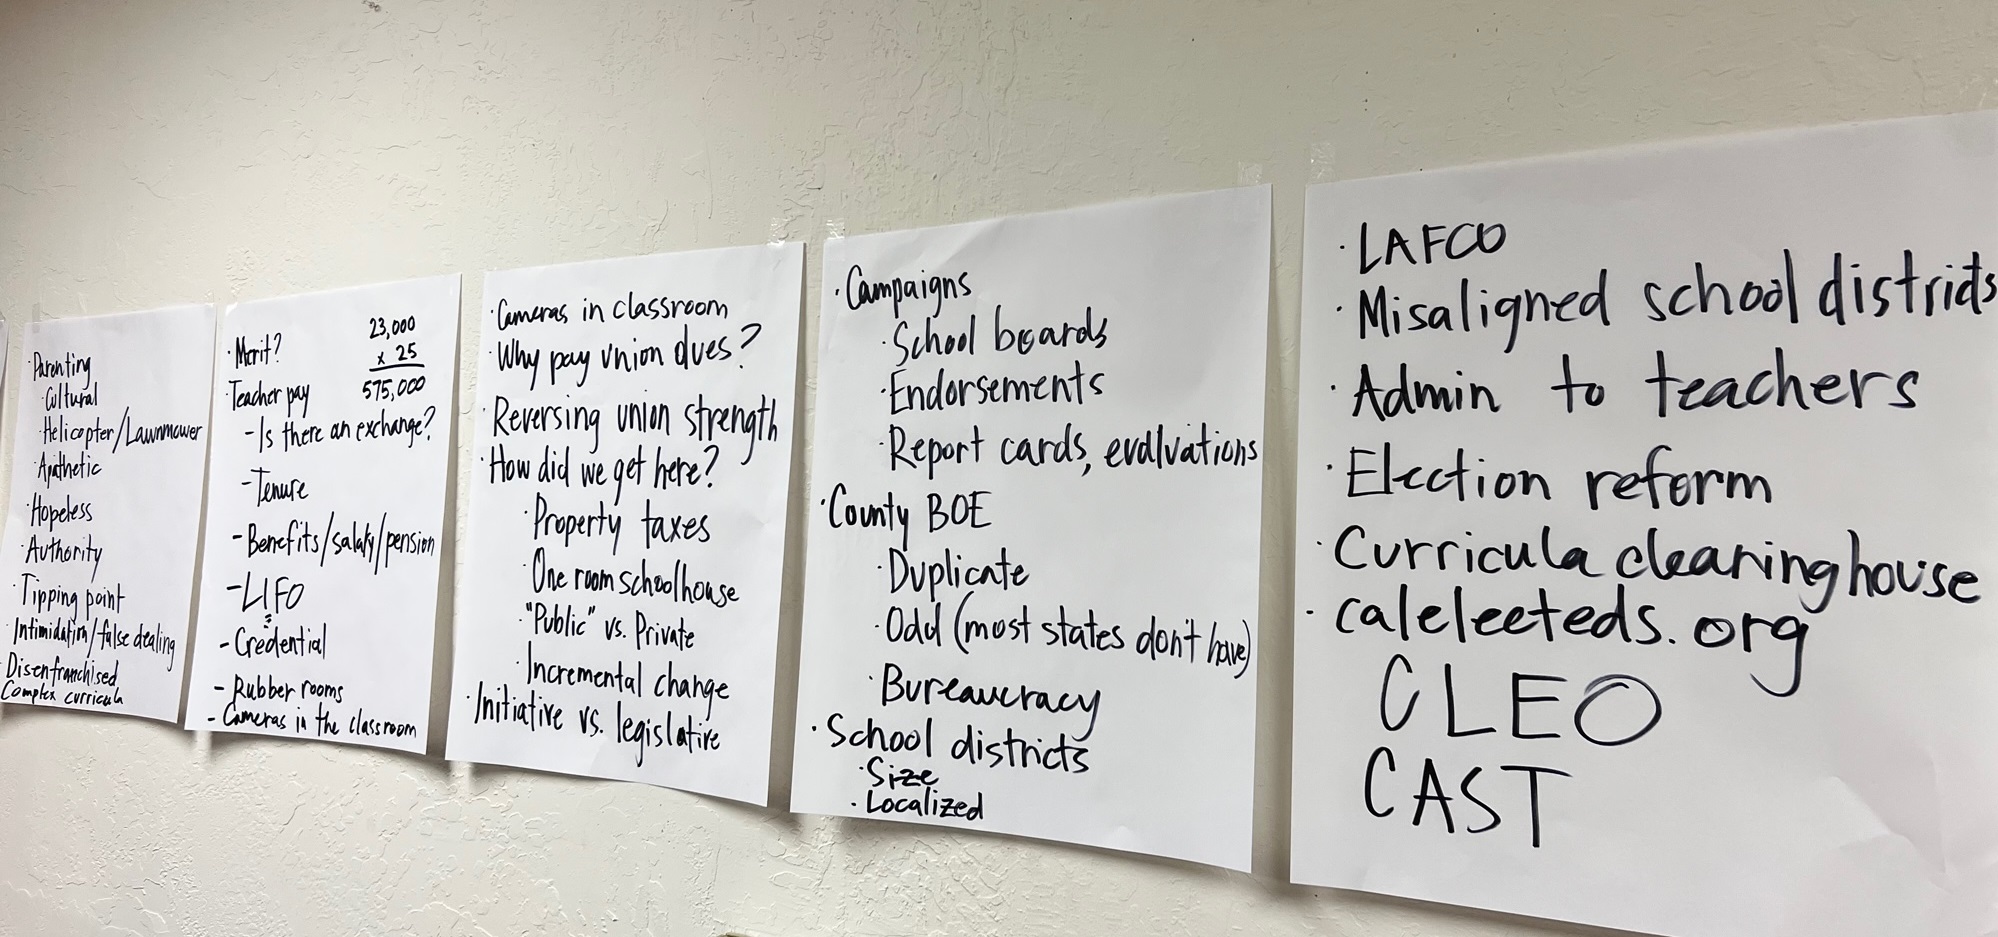 · Parenting
· Cultural
· Helicopter/Lawnmower
· Apathetic
· Hopeless
· Authority
· Tipping point
· Intimidation/false dealing
· Disenfranchised
Complex curricula
· Merit?
23,000
x 25
575,000
· Teacher pay
- Is there an exchange?
- Tenure
- Benefits/salaty/pension
- LIFO
- Credential
- Rubber rooms
- Cameras in the classroom
· Cameras in classroom
· Why pay union dues?
· Reversing union strength
· How did we get here?
· Property taxes
· One room schoolhouse
· "Public" vs. Private
· Incremental change
· Initiative vs. legislative
· Campaigns
· School boards
· Endorsements
· Report cards, evaluations
· County BOE
· Duplicate
· Odd (most states don't have)
· Bureaucracy
· School districts
· Size
· Localized
· LAFCO
· Misaligned school districts
· Admin to teachers
· Election reform
· Curricula clearing house
· caleleeteds.org
CLEO
CAST